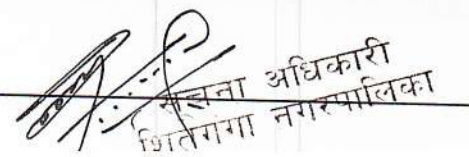 सूचना अधिकारी
शितगंगा नगरपालिका